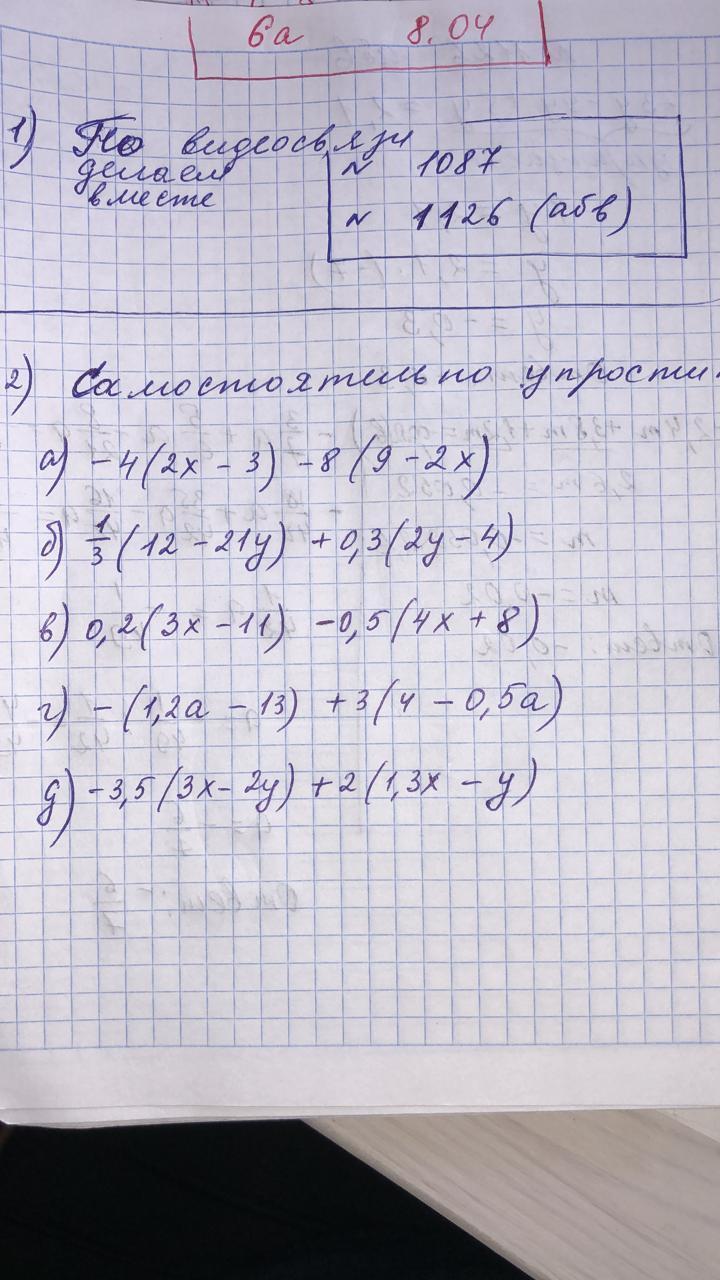 6а 8.04
1) По видеосвязи
делаем
вместе
~ 1087
~ 1126 (абв)
2) Самостоятельно упрости
а) -4(2x - 3) -8(9 - 2x)
б) 1/3(12 - 21y) + 0,3(2y - 4)
в) 0,2(3x - 11) -0,5(4x + 8)
г) -(1,2a - 13) + 3(4 - 0,5a)
д) -3,5(3x - 2y) + 2(1,3x - y)